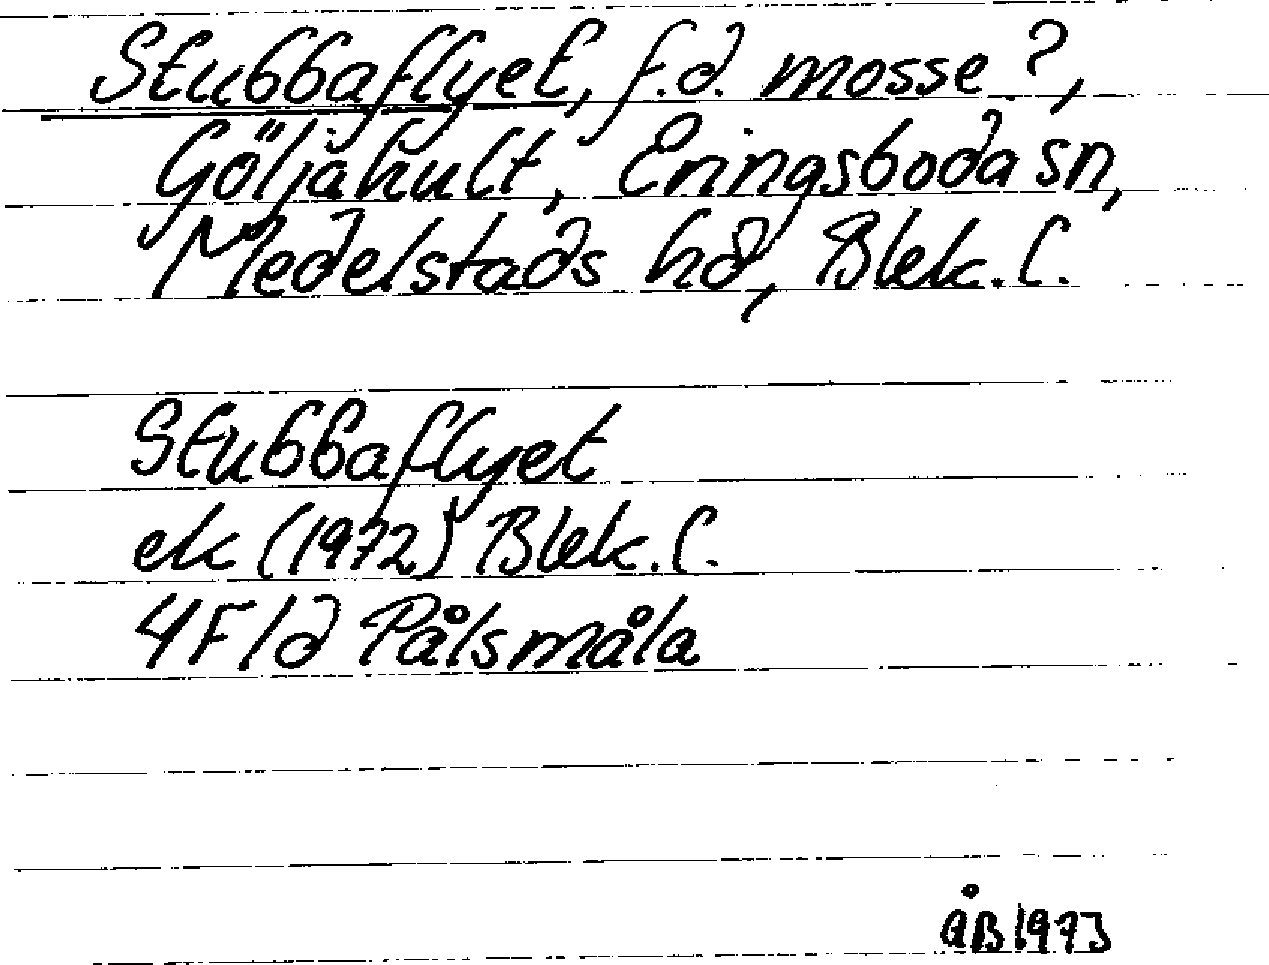 Stubbaflyet, f.d. mosse?,
Göljahult, Eringsboda sn,
Medelstads hd, Blek. l.
Stubbaflyet
ek (1972) Blek. l.
4F 1d Pålsmåla
ÅB 1973